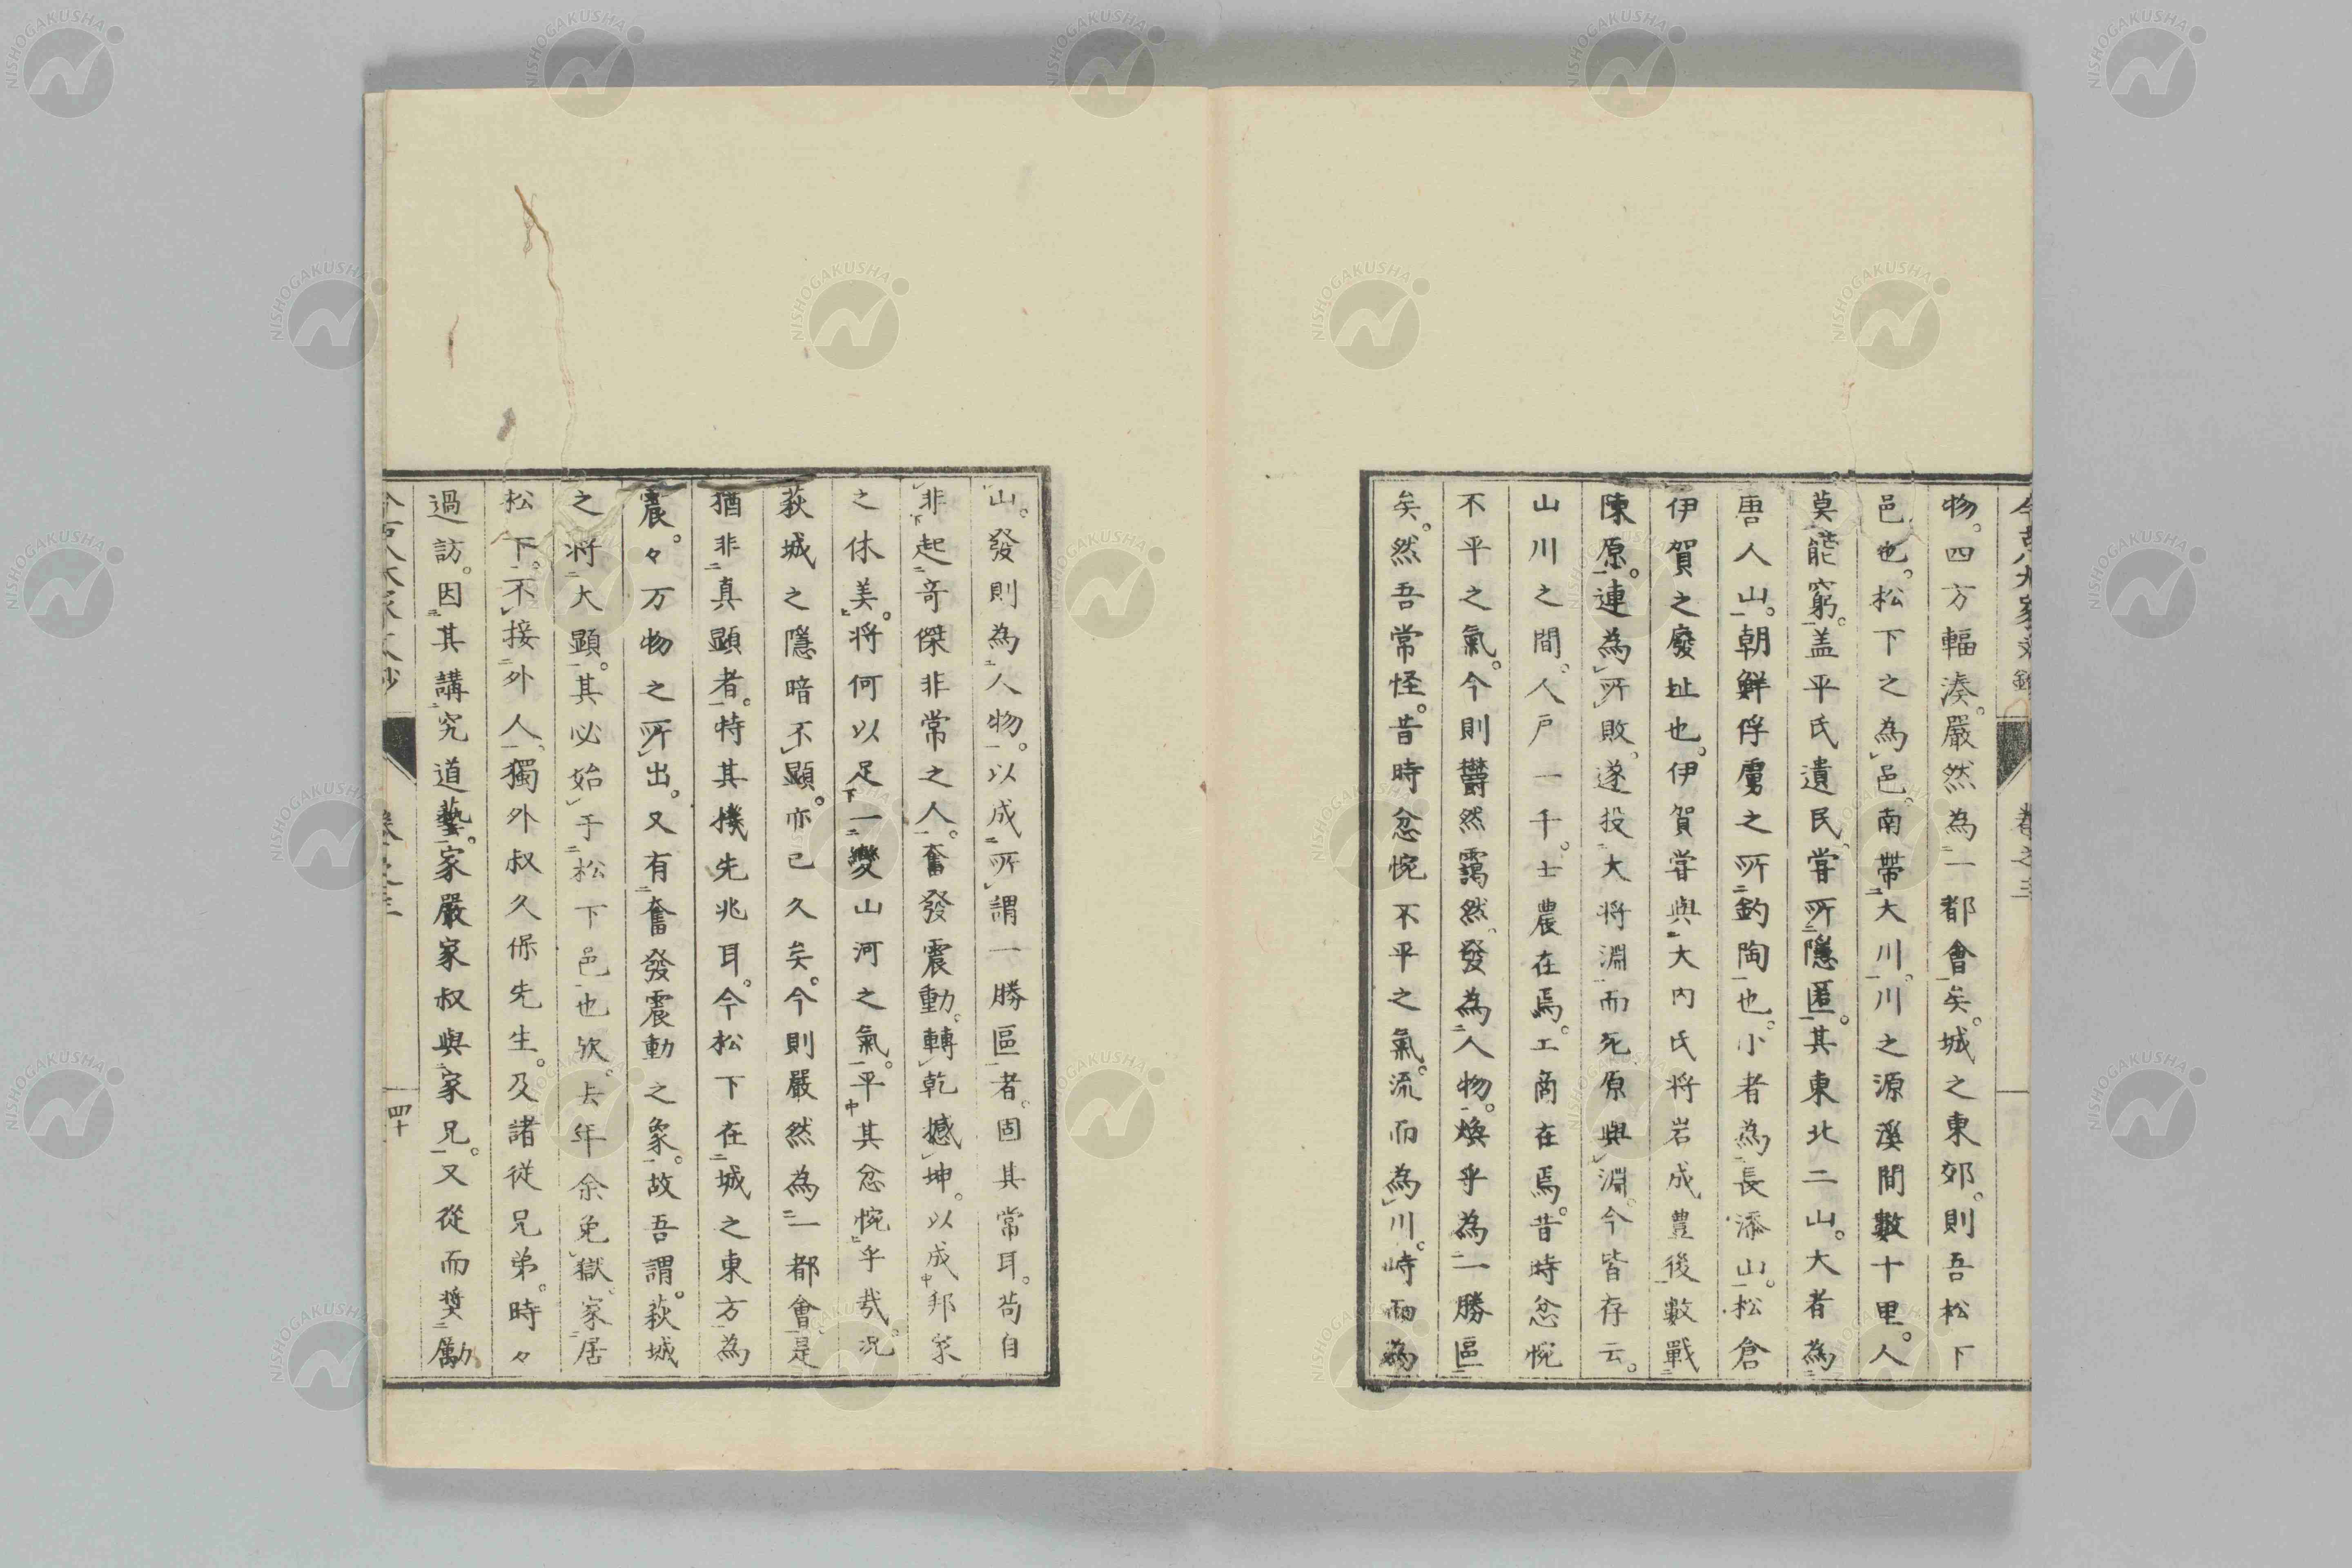 物。四方輻湊。嚴然為一都會矣。城之東郊。則吾松下
邑也。松下之為邑。南帶大川。川之源溪間數十里。人
莫能窮。盖平氏遺民。嘗所隱匿。其東北二山。大者為
唐人山。朝鮮俘虜之所釣陶也。小者為長添山。松倉
伊賀之廢址也。伊賀嘗與大内氏将岩成豊後數戰
陳原。連為所敗。遂投大将淵而死。原與淵。今皆存云。
山川之間。人戸一千。士農在焉。工商在焉。昔時忿惋
不平之氣。今則欝然靄然、發為人物。煥乎為一勝區
矣。然吾常怪。昔時忿惋不平之氣。流而為川。峙而為
山。發則為人物。以成所謂一勝區者。固其常耳。苟自
非起奇傑非常之人。奮發震動。轉乾撼坤。以成邦家
之休美。将何以足一變山河之氣。平其忿惋乎哉。況
萩城之隱暗不顯。亦已久矣。今則嚴然為一都會。是
猶非真顯者。特其機先兆耳。今松下在城之東方。為
震。々万物之所出。又有奮發震動之象。故吾謂。萩城
之将大顯。其必始于松下邑也歟。去年余免獄。家居
松下。不接外人。獨外叔久保先生。及諸從兄弟。時々
過訪。因其講究道藝。家嚴家叔與家兄。又從而奨勵
卷之三
四十